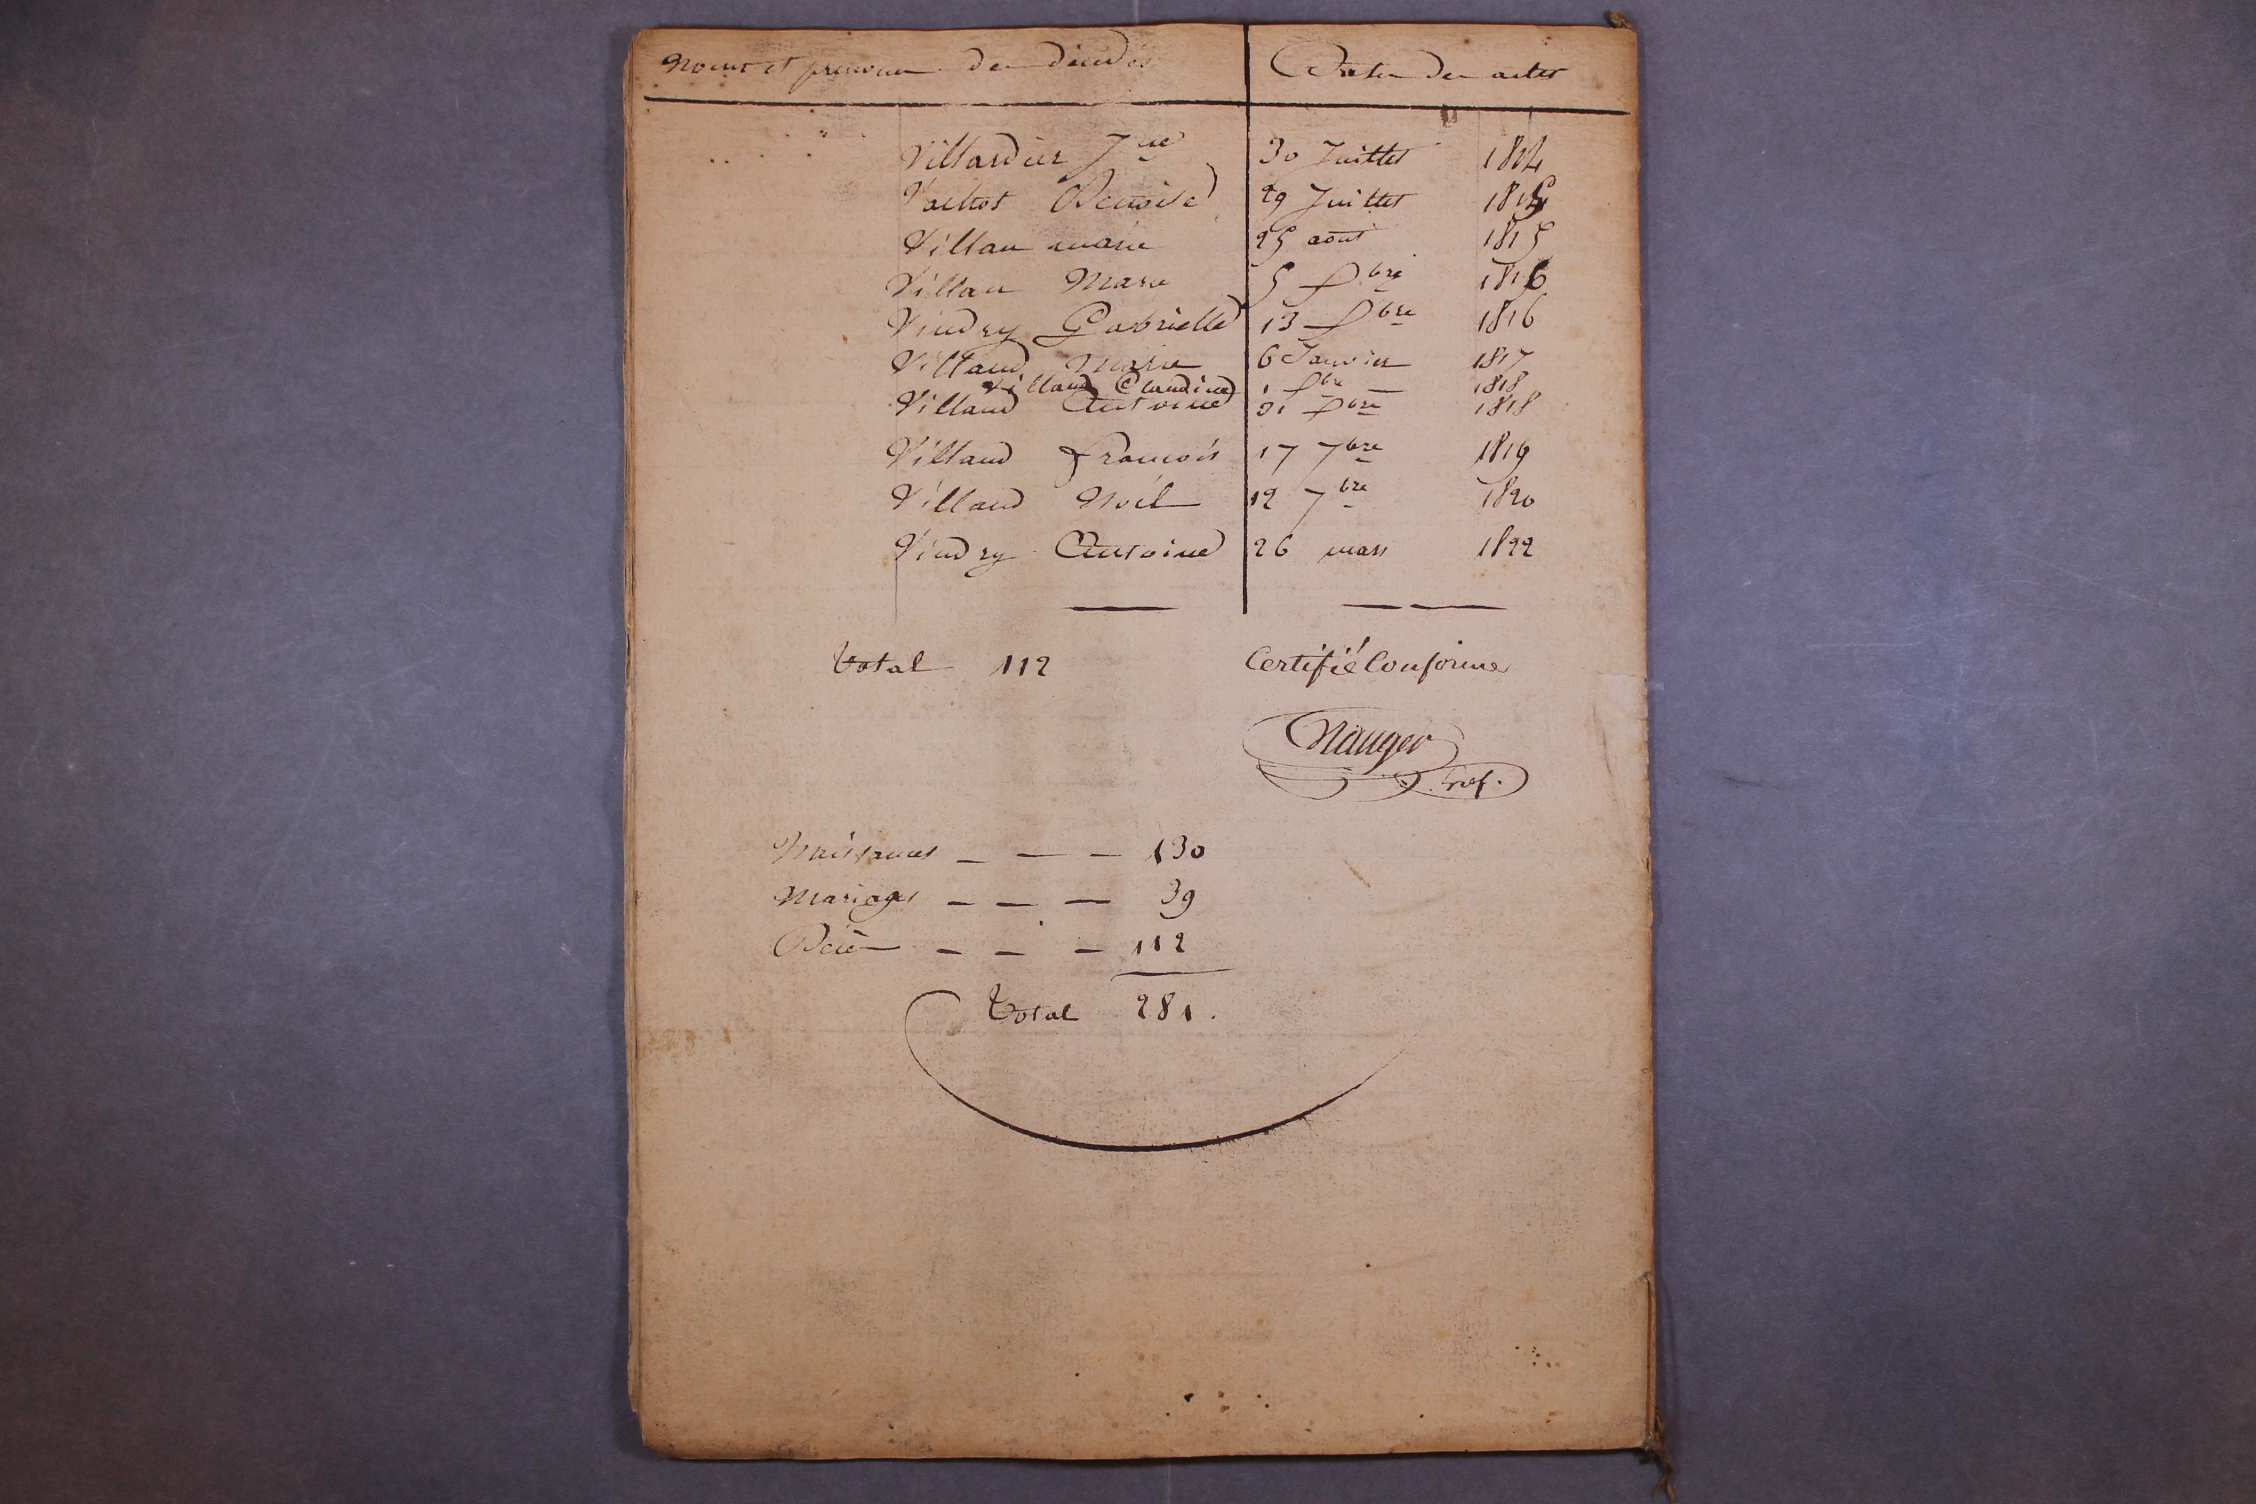 Noms et prénoms des décédés Dates des actes
Villardier J.ne 30 Juillet 1814
Vachot Benoite 29 Juillet 1815
Villau marie 25 août 1815
Villau Marie 5 9bre 1816
Vindry Gabrielle 13 9bre 1816
Villaud Marie 6 Janvier 1817
Villaud Claudine 1 9bre 1818
Villaud Antoine 31 9bre 1818
Villaud François 17 7bre 1819
Villaud Noël 12 7bre 1820
Vindry Antoine 26 mars 1822
Total 112 Certifié Conforme
Nauger
Gref.
Naissances 130
Mariages 39
Décès 112
Total 281.